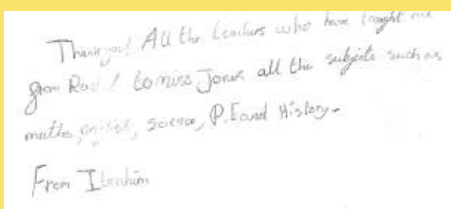 Thank you! All the teachers who have taught me
from Rec / to miss Jones all the subjects such as
maths, english, science, P.E and History.
From Ibrahim